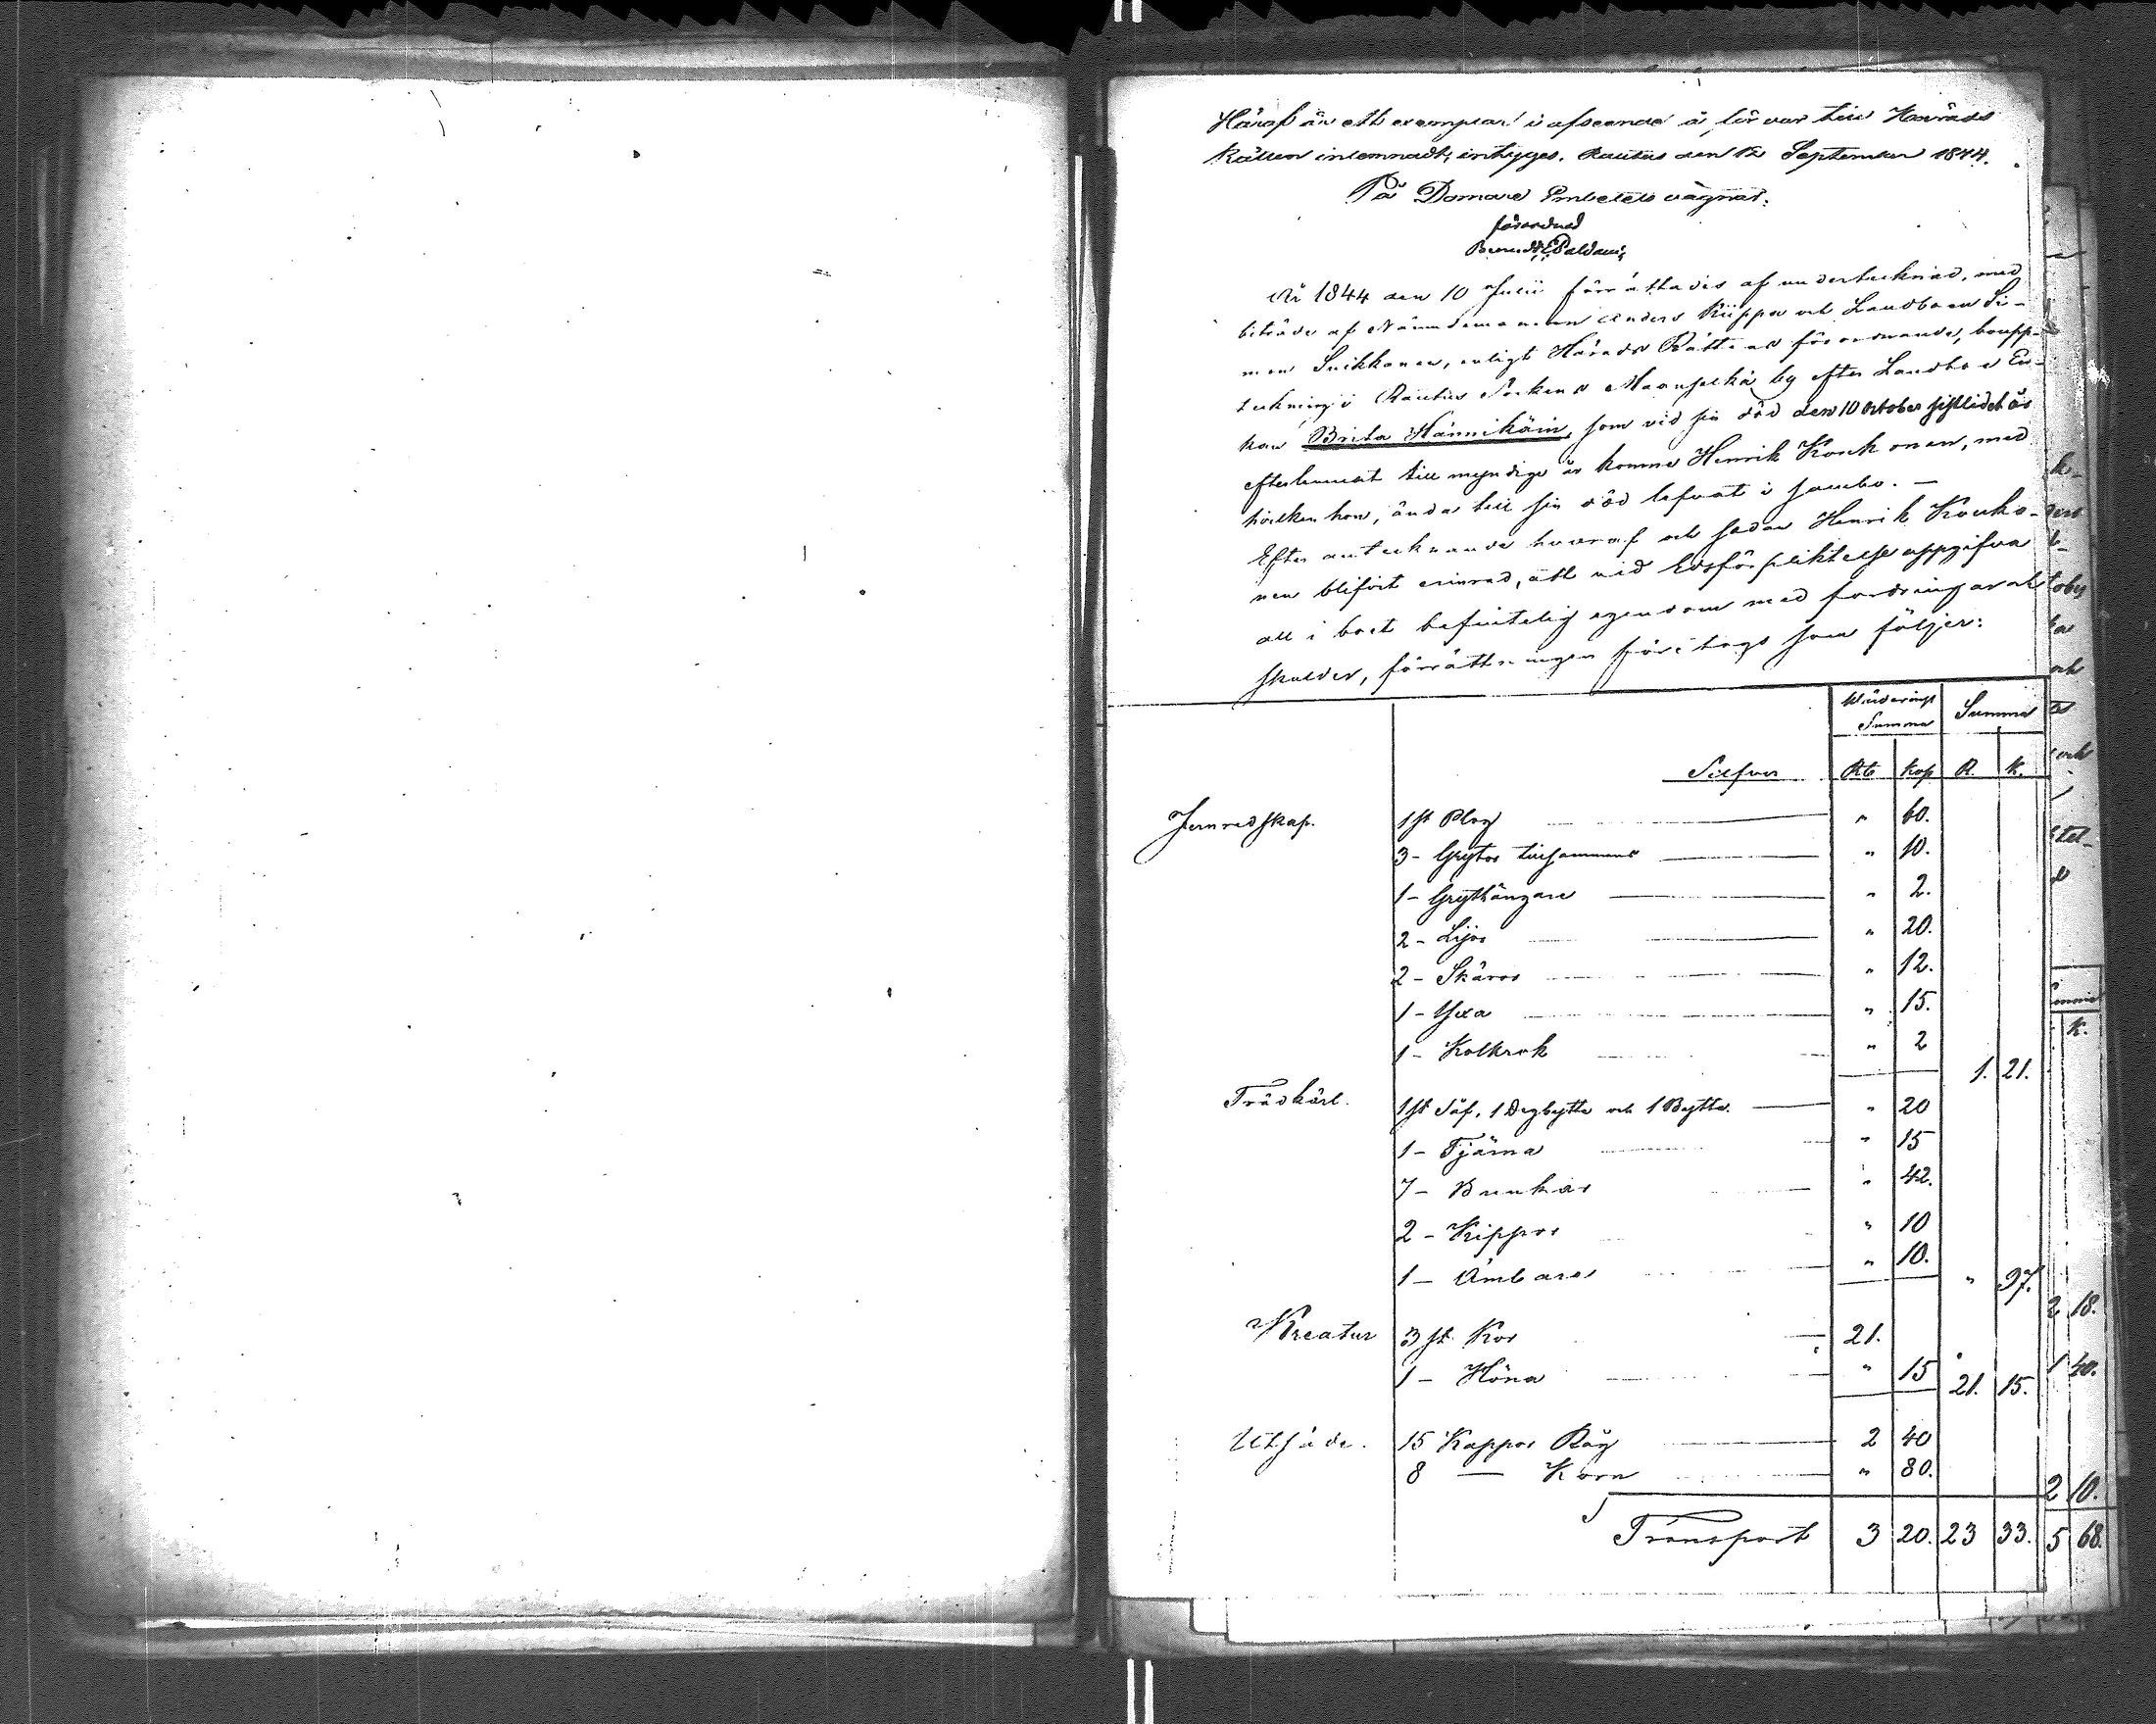 Häraf är ett exemplar i afseende å förvar till Härads
Rätten inlemnadt; intyges. Rautus den 12 September 1844.
På Domare Embetets vägnar:
förordnad
Berndt E Paldani
År 1844 den 10 Julii förrättades af undertecknad, med
biträde af Nämndemannen Anders Kiippa och Landboen Si-
mon Suikkanen, enligt Härads Rättens förordnande, boupp-
teckning i Rautus Socken Maanselkä by efter Landbo En-
kan Brita Hännikäin, som vid sin död den 10 October sistlidet år
efterlemnat till myndige år komne Henrik Koukonen, med
hvilken hon, ända till sin död lefvat i sambo. —
Efter antecknande hvaraf och sedan Henrik Kouko-
nen blifvit erinrad, att vid Edsförpliktelse uppgifva
all i boet befintelig egendom med fordringar och
skulder, förrättningen företogs som följer:
Wärderings Summa
Summa
Silfver Rb kop R. K.
Jernredskap. 1 st Plog " 60.
3 - Grytor tillsammans " 10.
1 - Grythängare " 2.
2 - Lijor " 20.
2 - Skäror " 12.
1 - Yxa " 15.
1 - Kolkrok " 2
1. 21.
Trädkärl. 1 st Såf, 1 Degbytta och 1 Bytta. " 20
1 - Tjärna " 15
7 - Bunkar " 42.
2 - Kippor " 10
1 - Ämbare " 10.
" 97.
Kreatur 3 st Kor 21.
1 - Höna " 15 21. 15.
Utsäde. 15 Kappor Råg 2 40
8 — Korn " 80.
Transport 3 20. 23 33.
k-
tober
och
K.
2 18.
1 40.
2 10.
5 68.